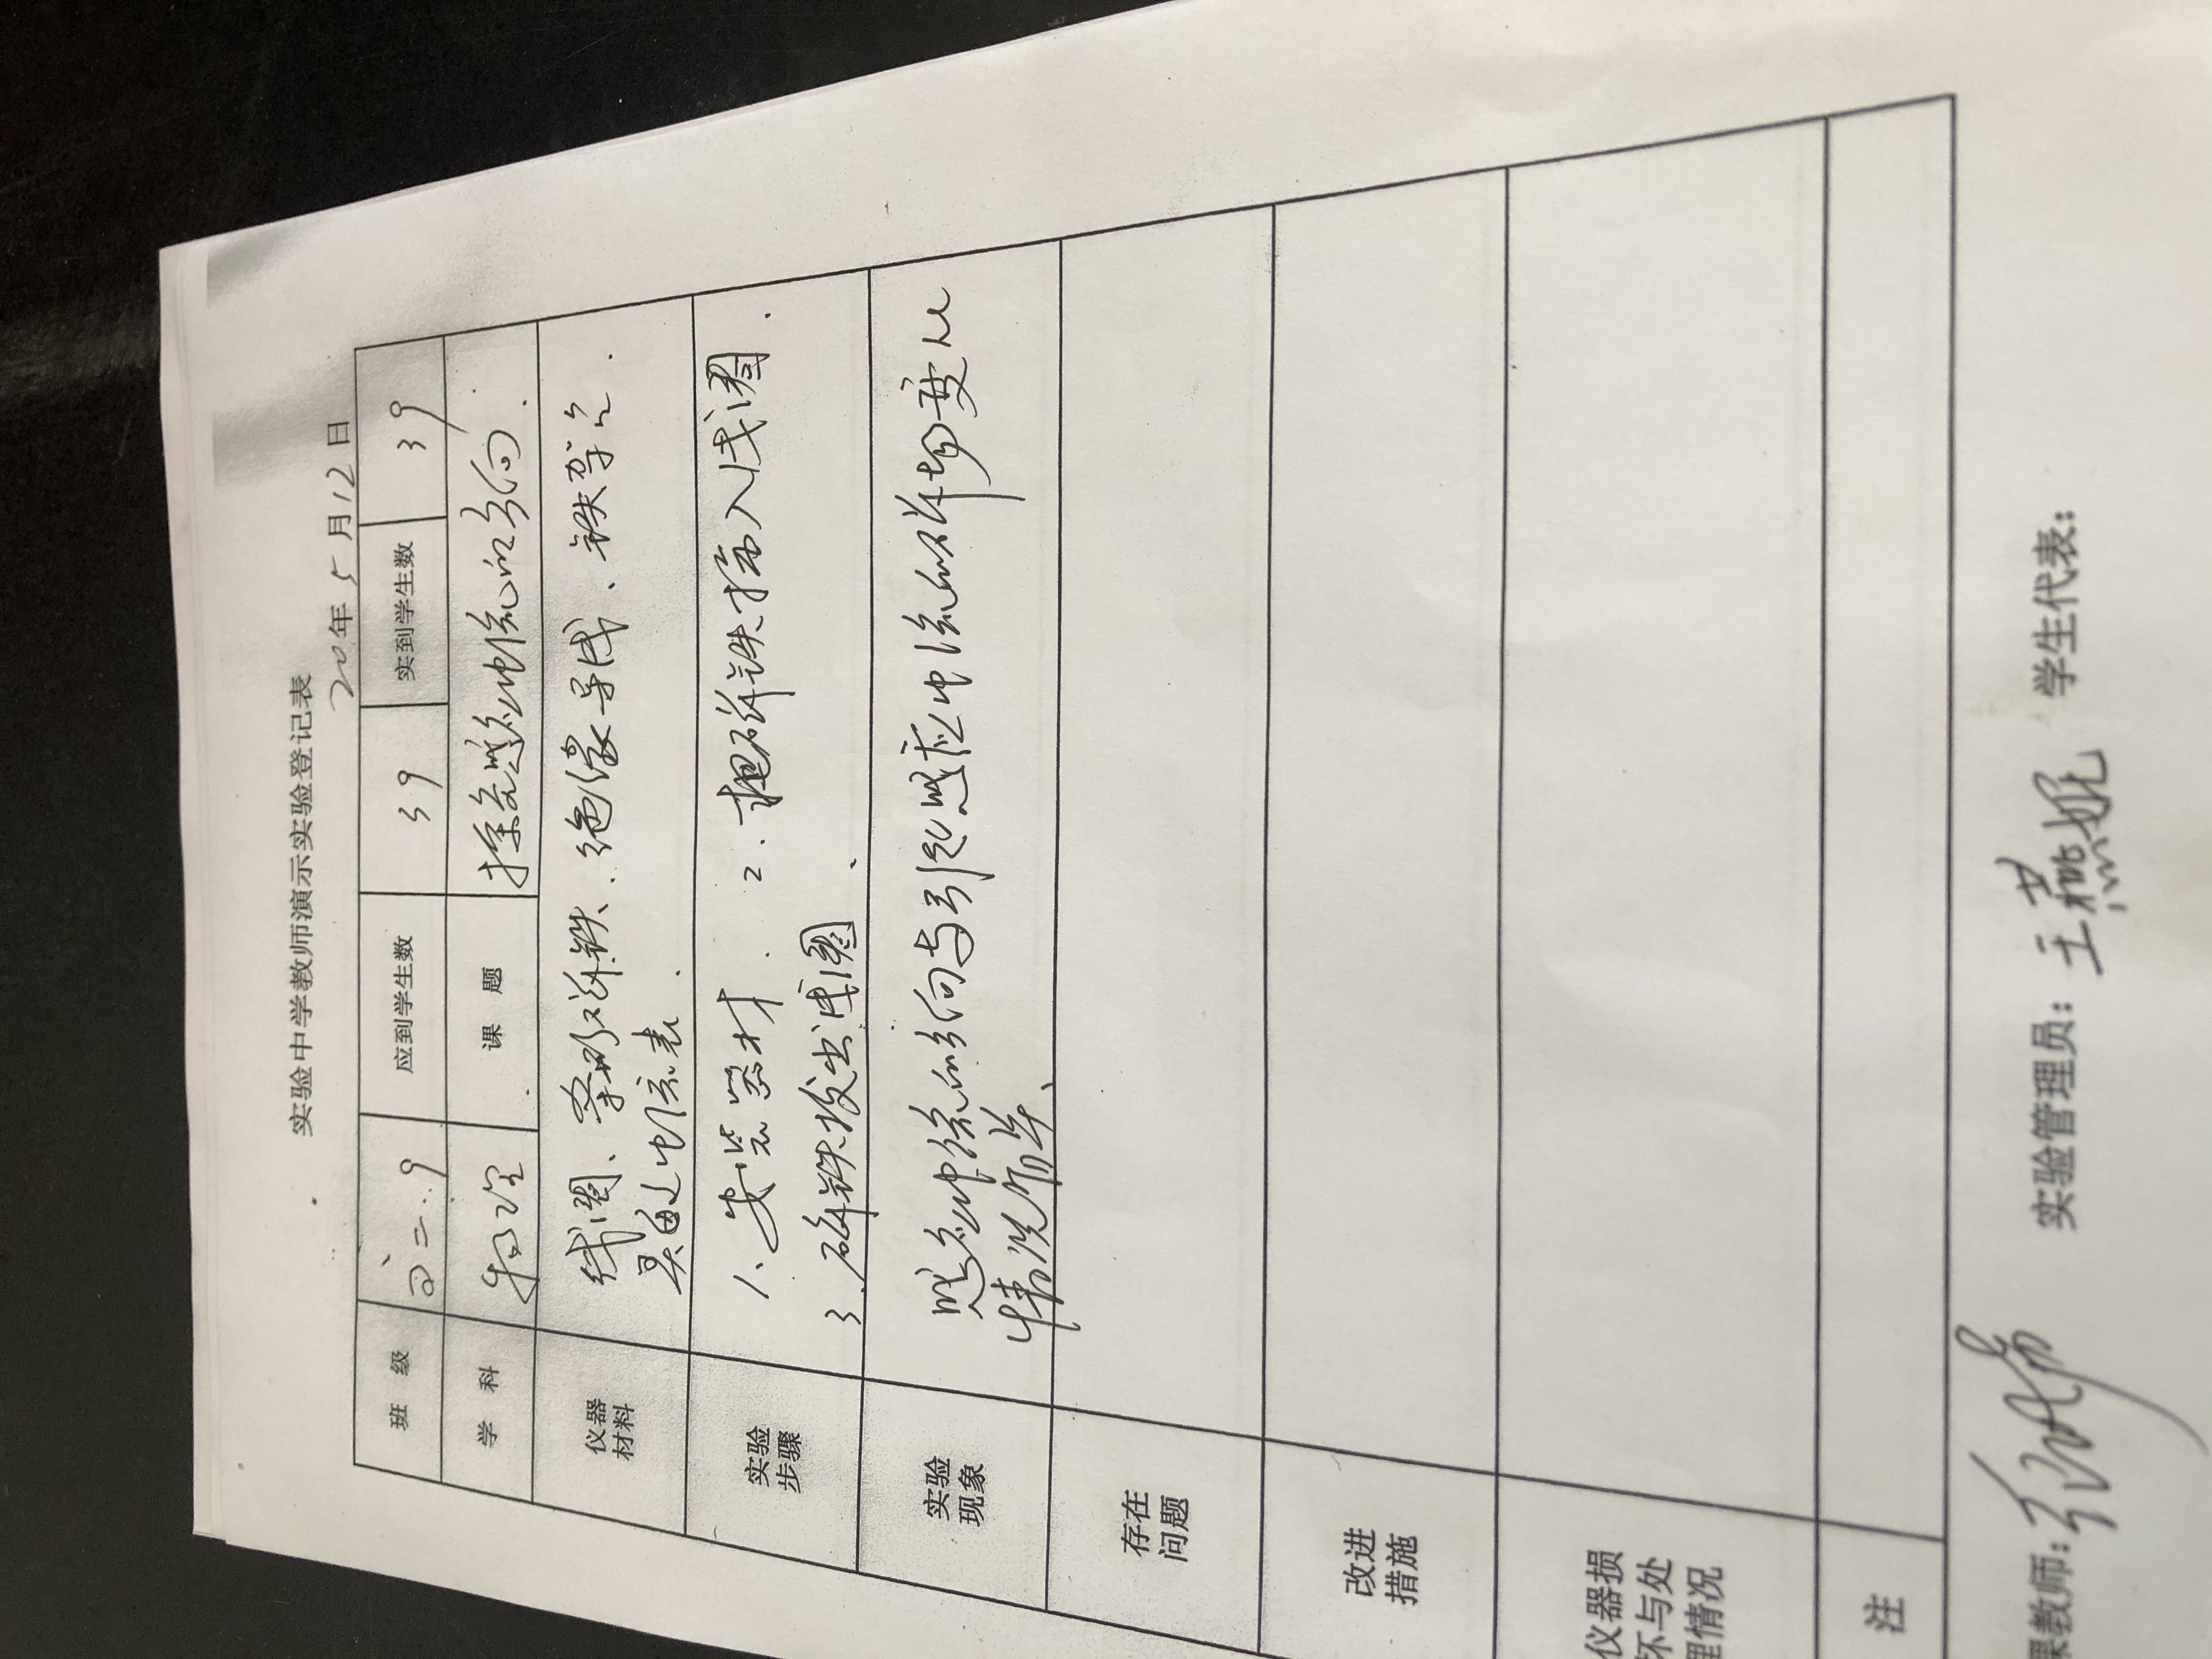 实验中学教师演示实验登记表
20 年 5 月 12 日
班 级 高二.9 应到学生数 39 实到学生数 39
学 科 物理 课 题 探究感应电流的方向
仪器材料 线圈、条形磁铁、绝缘导线、铁架台.
灵敏电流表.
实验步骤 1、安装器材. 2.把磁铁插入线圈.
3.磁铁拔出线圈、
实验现象 感应电流的方向与引起感应电流的磁场变化
情况有关、
存在问题
改进措施
仪器损坏与处理情况
注
课教师: 实验管理员: 王燕妮 学生代表: